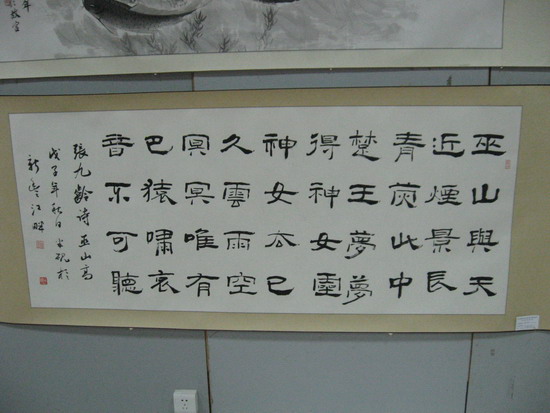 巫山與天
近煙景長
青熒此中
楚王夢夢
得神女靈
神女去已
久雲雨空
冥冥唯有
巴猿嘯哀
音不可聽
張九齡詩巫山高
戊子年秋日硯於
新豐江畔